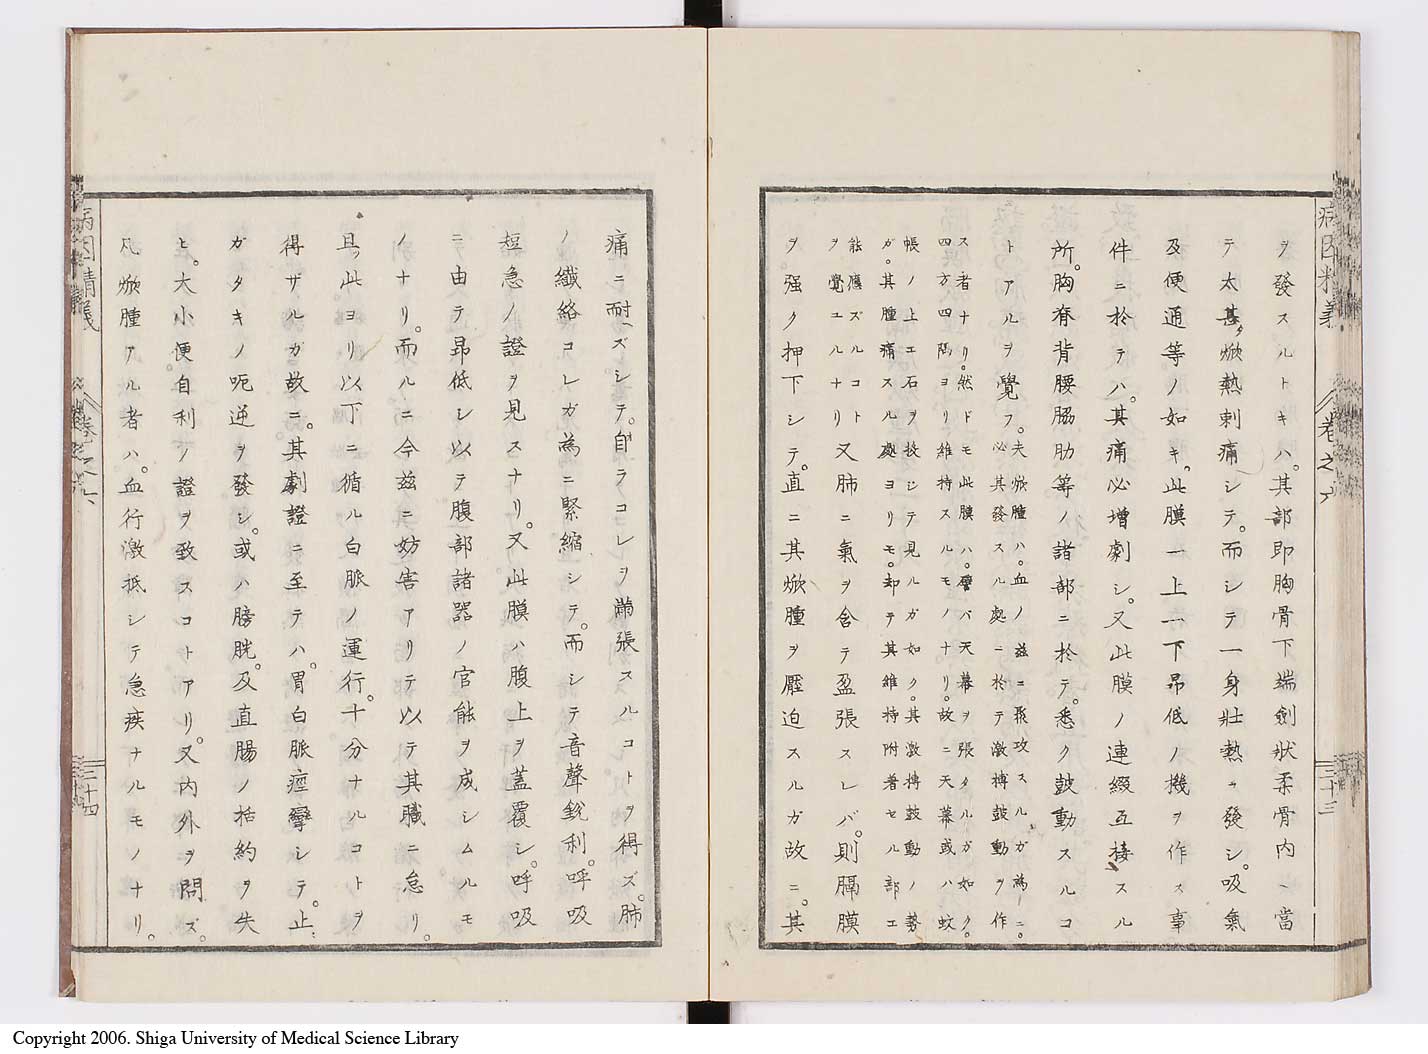 病因精義
巻之六
三十三
ヲ發スルトキハ。其部即胸骨下端劍狀柔骨内ヽ當
テ太甚ダ焮熱刺痛シテ。而シテ一身壯熱ヲ發シ。吸氣
及便通等ノ如キ。此膜一上一下昂低ノ機ヲ作ス事
件ニ於テハ。其痛必增劇シ。又此膜ノ連綴互棲スル
所。胸脊背腰脇肋等ノ諸部ニ於テ。悉ク鼓動スルコ
トアルヲ覺フ。夫焮腫ハ。血ノ茲ニ聚攻スルガ為ニ。
必其發スル處ニ於テ激搏鼓動ヲ作
ス者ナリ。然ドモ此膜ハ。譬バ天幕ヲ張タルガ如ク。
四方四隅ヨリ維持スルモノナリ。故ニ天幕或ハ蚊
帳ノ上エ石ヲ投シテ見ルガ如ク。其激搏鼓動ノ勢
ガ。其腫痛スル處ヨリモ。却テ其維持附著セル部エ
能應ズルコト
ヲ覺ユルナリ
又肺ニ氣ヲ含テ盈張スレバ。則膈膜
ヲ强ク押下シテ。直ニ其焮腫ヲ壓迫スルガ故ニ。其
痛ニ耐ヘズシテ。自ラコレヲ滿張スルコトヲ得ズ。肺
ノ纖絡コレガ為ニ緊縮シテ。而シテ音聲銳利。呼吸
短急ノ證ヲ見スナリ。又此膜ハ腹上ヲ蓋覆シ。呼吸
ニ由テ昂低シ以テ腹部諸器ノ官能ヲ成シムルモ
ノナリ。而ルニ今茲ニ妨害アリテ以テ其職ニ怠リ。
且ッ此ヨリ以下ニ循ル白脈ノ運行。十分ナルコトヲ
得ザルガ故ニ。其劇證ニ至テハ。胃白脈痙攣シテ。止
ガタキノ呃逆ヲ發シ。或ハ膀胱。及直腸ノ括約ヲ失
ヒ。大小便。自利ノ證ヲ致スコトアリ。又内外ヲ問ズ。
凡焮腫アル者ハ。血行激抵シテ急疾ナルモノナリ。
病因精義
巻之六
三十四
Copyright 2006. Shiga University of Medical Science Library